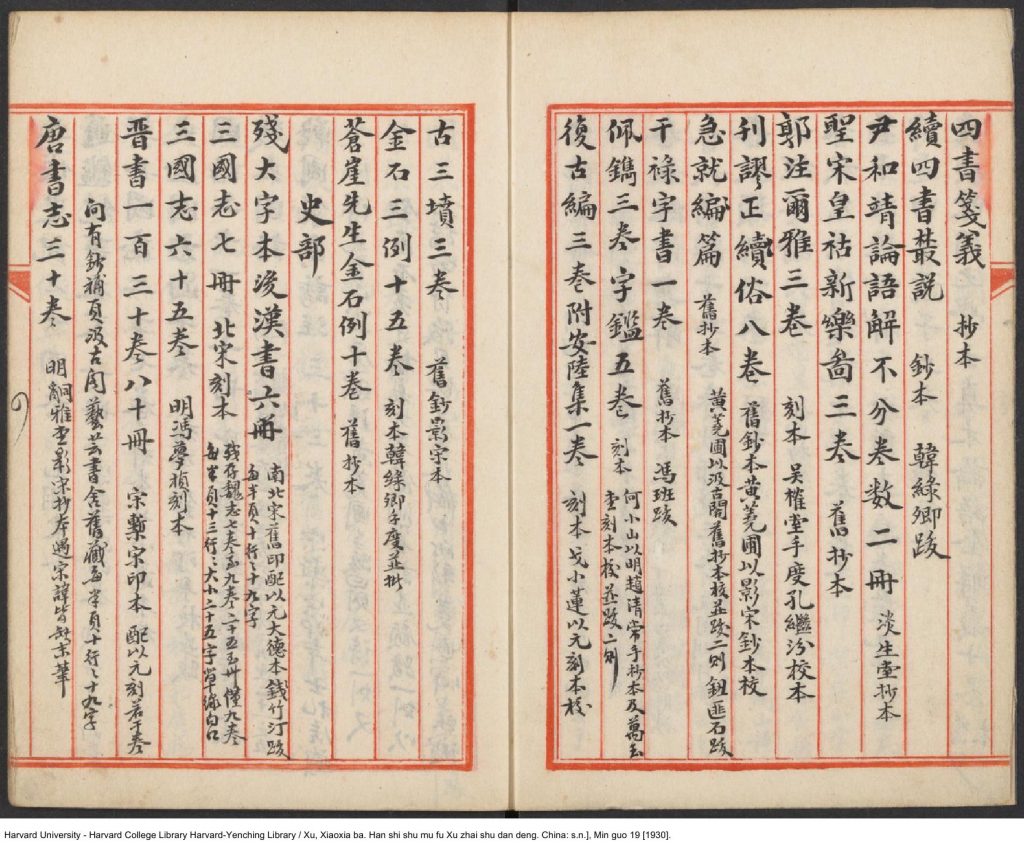 四書箋義　抄本
續四書叢説　鈔本　韓緑卿跋
尹和靖論語解不分卷數二冊　淡生堂抄本
聖宋皇祜新樂啚三卷　舊抄本
郭注爾雅三卷　刻本　吴槯堂手度孔繼汾校本
刊謬正續俗八卷　舊鈔本黄蕘圃以影宋鈔本校
急就編篇　舊抄本　黄蕘圃以汲古閣舊抄本校並跋二則鈕匪石跋
干禄字書一卷　舊抄本　馮班跋
佩鐫三卷字鑑五卷　刻本　何小山以明趙清常手抄本及萬玉
堂刻本校並跋二則
復古編三卷附安陸集一卷　刻本戈小蓮以元刻本校
古三墳三卷　舊鈔影宋本
金石三例十五卷　刻本韓緑卿手度並批
蒼崖先生金石例十卷　舊抄本
史部
殘大字本後漢書六冊　南北宋舊印配以元大德本錢竹汀跋
每半頁十行行十九字
三國志七冊　北宋刻本　殘存魏志七卷至九卷二十五至卅僅九卷
每半頁十三行行大小二十五字單線白口
三國志六十五卷　明馮夢禎刻本
晋書一百三十卷八十冊　宋槧宋印本　配以元刻若干卷
向有鈔補頁汲古閣藝芸書舍舊藏每半頁十行行十九字
唐書志三十卷　明嗣雅堂影宋抄本遇宋諱皆缺末筆
Harvard University - Harvard College Library Harvard-Yenching Library / Xu, Xiaoxia ba. Han shi shu mu fu Xu zhai shu dan deng. China: s.n.], Min guo 19 [1930].